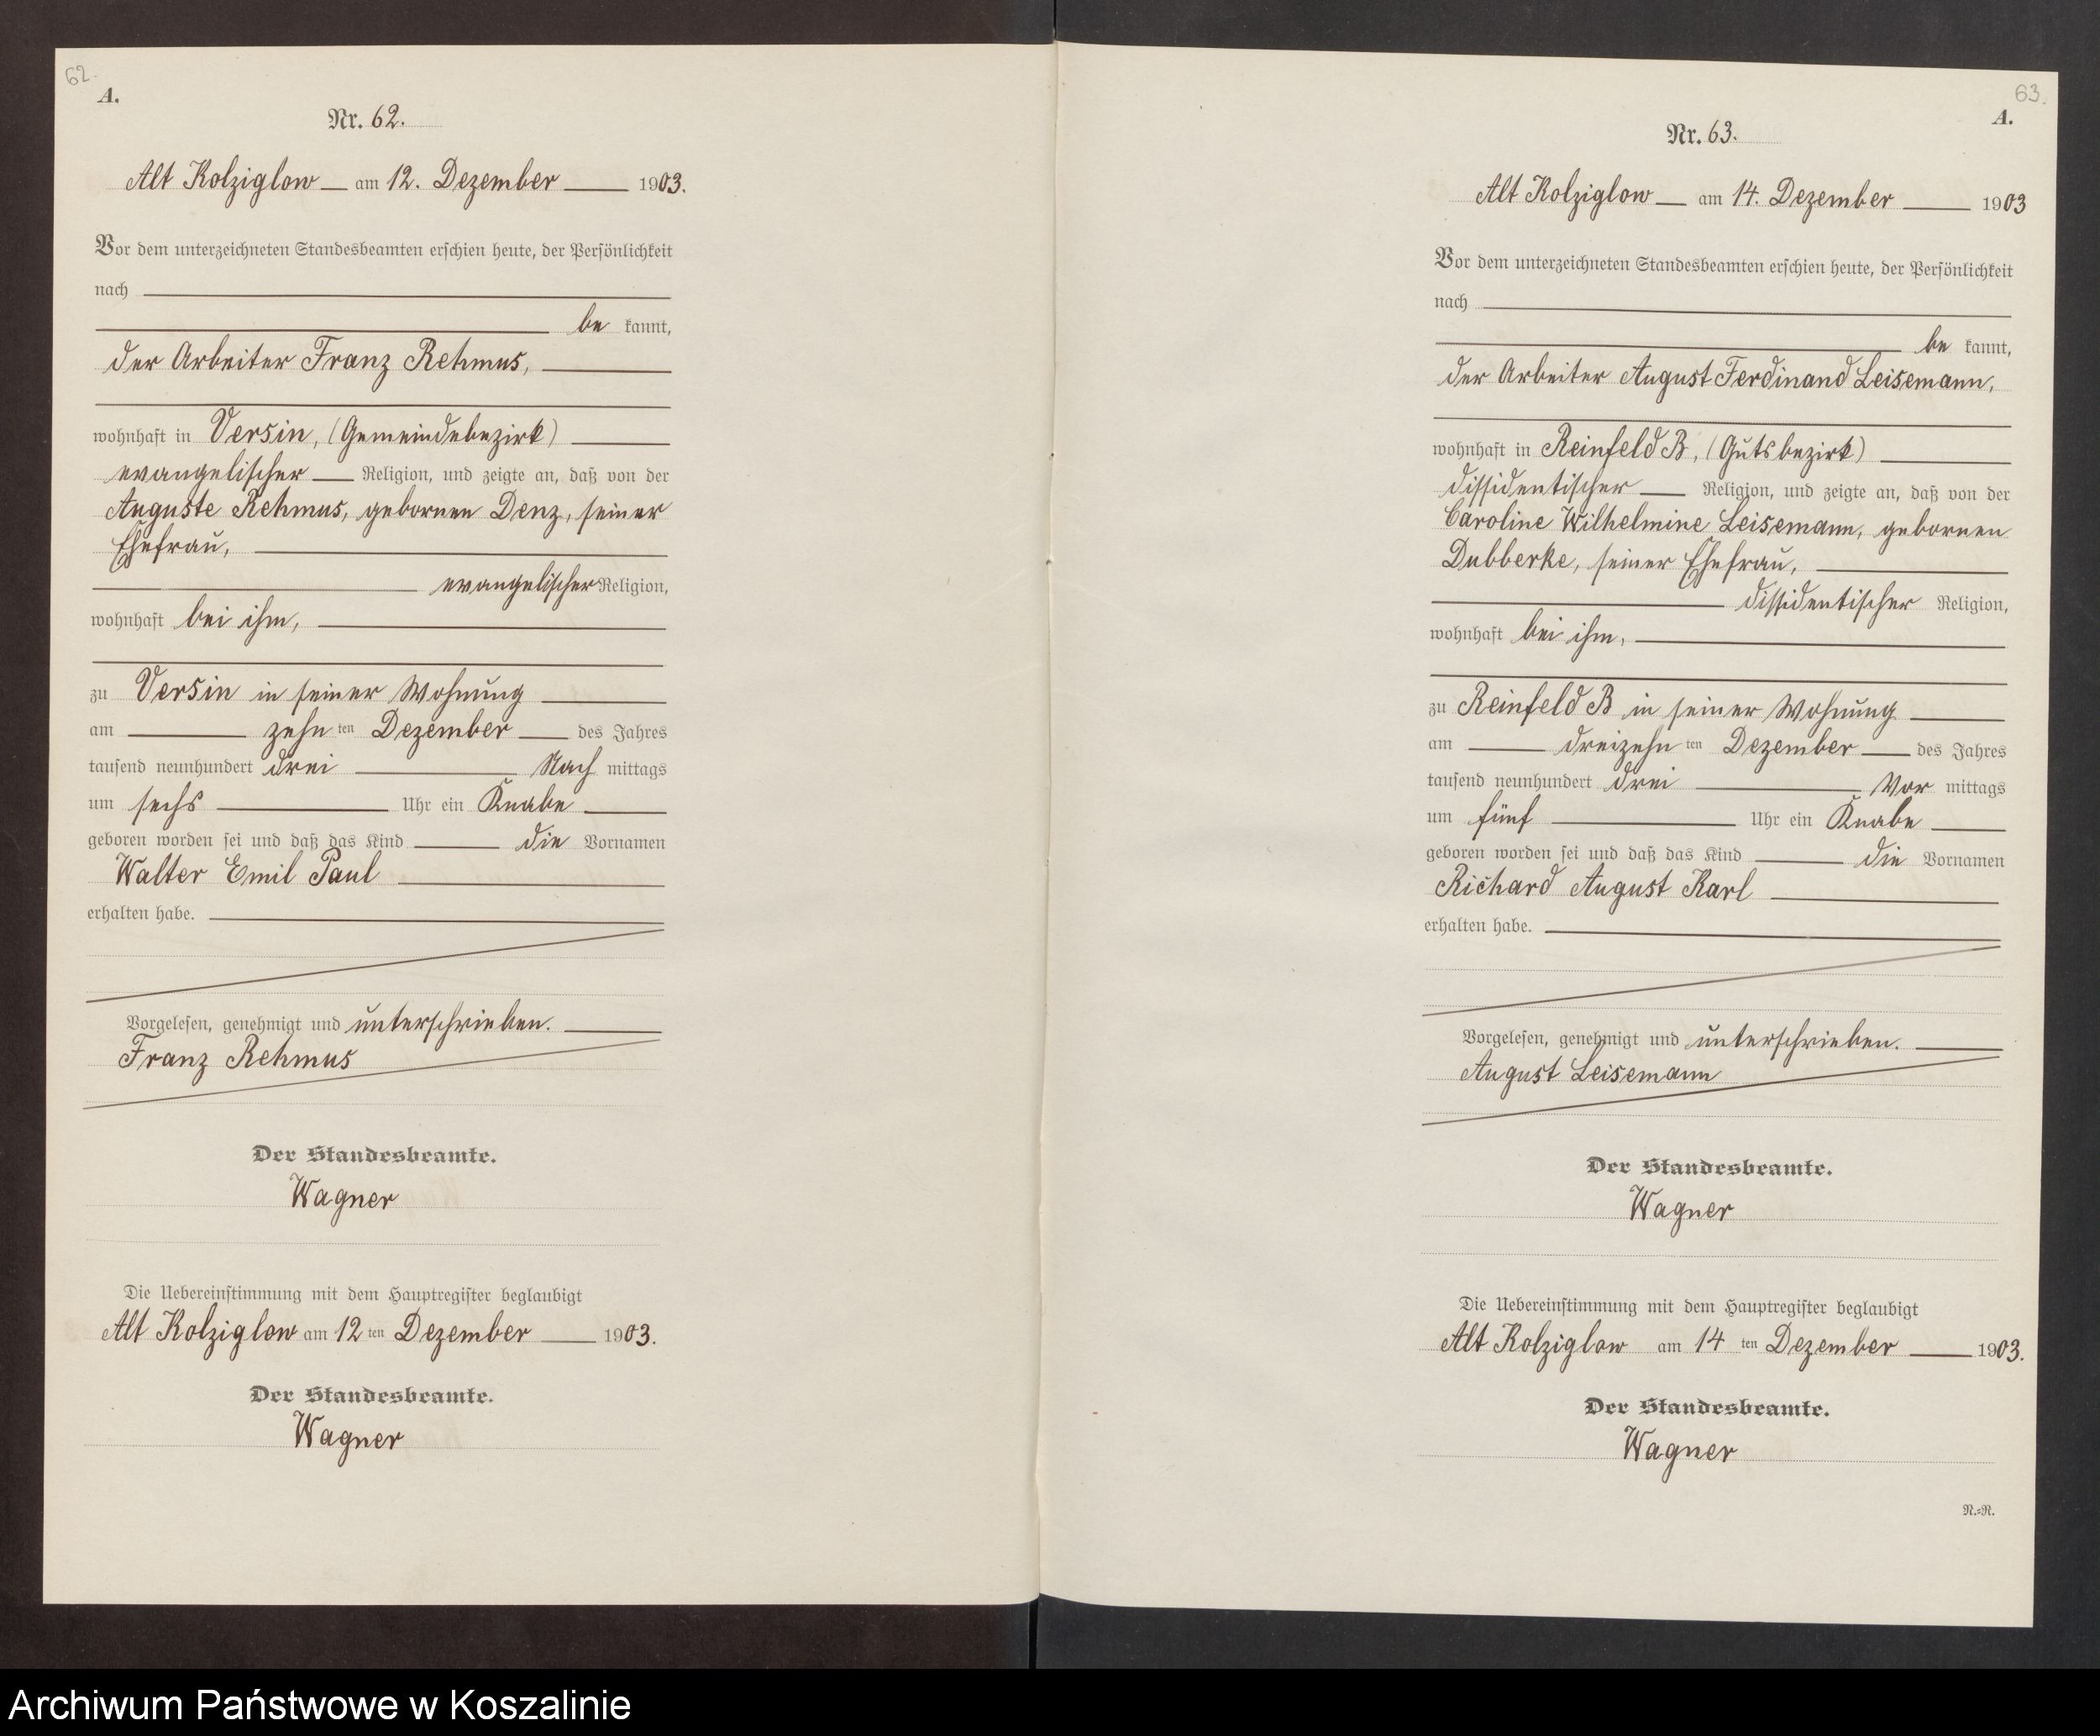 62.
A.
Nr. 62.
Alt Kolziglow am 12. Dezember 1903.
Vor dem unterzeichneten Standesbeamten erschien heute, der Persönlichkeit
nach
be kannt,
der Arbeiter Franz Rehmus,
wohnhaft in Versin, (Gemeindebezirk)
evangelischer Religion, und zeigte an, daß von der
Auguste Rehmus, gebornen Denz, seiner
Ehefrau,
evangelischer Religion,
wohnhaft bei ihm,
zu Versin in seiner Wohnung
am zehn ten Dezember des Jahres
tausend neunhundert drei Nach mittags
um sechs Uhr ein Knabe
geboren worden sei und daß das Kind die Vornamen
Walter Emil Paul
erhalten habe.
Vorgelesen, genehmigt und unterschrieben.
Franz Rehmus
Der Standesbeamte.
Wagner
Die Uebereinstimmung mit dem Hauptregister beglaubigt
Alt Kolziglow am 12 ten Dezember 1903.
Der Standesbeamte.
Wagner
63.
A.
Nr. 63.
Alt Kolziglow am 14. Dezember 1903
Vor dem unterzeichneten Standesbeamten erschien heute, der Persönlichkeit
nach
be kannt,
der Arbeiter August Ferdinand Leisemann,
wohnhaft in Reinfeld B, (Gutsbezirk)
dissidentischer Religion, und zeigte an, daß von der
Caroline Wilhelmine Leisemann, gebornen
Dubberke, seiner Ehefrau,
dissidentischer Religion,
wohnhaft bei ihm,
zu Reinfeld B in seiner Wohnung
am dreizehn ten Dezember des Jahres
tausend neunhundert drei Vor mittags
um fünf Uhr ein Knabe
geboren worden sei und daß das Kind die Vornamen
Richard August Karl
erhalten habe.
Vorgelesen, genehmigt und unterschrieben.
August Leisemann
Der Standesbeamte.
Wagner
Die Uebereinstimmung mit dem Hauptregister beglaubigt
Alt Kolziglow am 14 ten Dezember 1903.
Der Standesbeamte.
Wagner
N.=R.
Archiwum Państwowe w Koszalinie